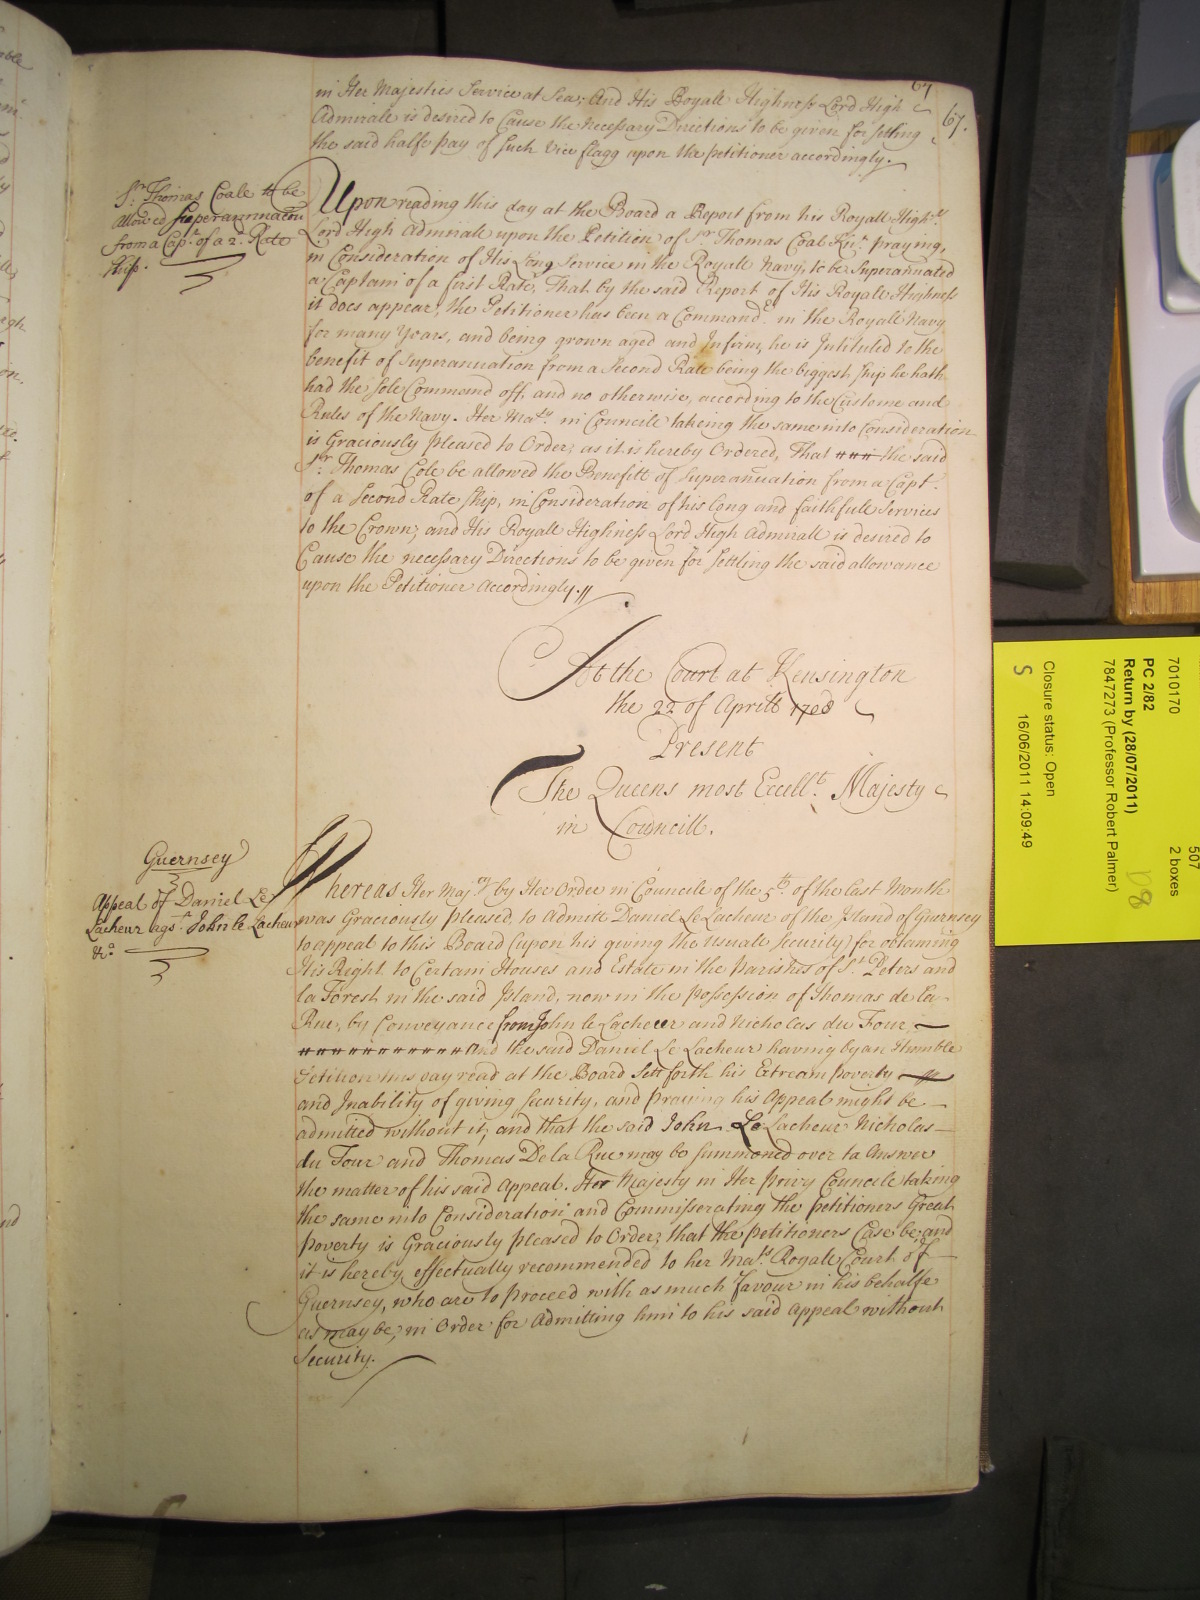 67
67.
in Her Majesties Service at Sea; And His Royall Highness Lord High
Admirall is desired to Cause the necessary Directions to be given for setling
the said halfe pay of such Vice flagg upon the petitioner accordingly.
Sr. Thomas Coale to be
allowed superannuacon
from a Capt. of a 2d. Rate
Ship.
Upon reading this day at the Board a Report from his Royall Highss
Lord High Admirall upon the Petition of Sr. Thomas Coal Knt. praying,
in Consideration of His Long Service in the Royall Navy, to be Superanuated
a Captain of a first Rate, That by the said Report of His Royall Highness
it does appear, the Petitioner has been a Commandr. in the Royall Navy
for many Years, and being grown aged and Infirm, he is Intituled to the
benefit of Superanuation from a Second Rate being the biggest ship he hath
had the sole Command off, and no otherwise, according to the Custome and
Rules of the Navy. Her Maty. in Councill takeing the same into Consideration
is Graciously pleased to Order, as it is hereby Ordered, That the said
Sr. Thomas Cole be allowed the Benefitt of Superanuation from a Capt.
of a Second Rate Ship, in Consideration of his long and faithfull Services
to the Crown; and His Royall Highness Lord High Admirall is desired to
Cause the necessary Directions to be given for settling the said allowance
upon the Petitioner Accordingly.
At the Court at Kensington
the 22 of Aprill 1708
Present
The Queens most Excellt. Majesty
in Councill.
Guernsey
Appeal of Daniel Le
Lacheur agst. John le Lacheur
&c.
Whereas Her Majty. by Her Order in Councile of the 5th. of the last Month
was Graciously pleased, to Admitt Daniel Le Lacheur of the Island of Guernsey
to appeal to this Board (upon his giving the usuall Security) for obtaining
His Right to Certain Houses and Estate in the Parishes of St. Peters and
la Forest in the said Island, now in the possession of Thomas de la
Rue, by Conveyance from John le Lacheur and Nicholas du Four,
And the said Daniel Le Lacheur having by an Humble
Petition this day read at the Board sett forth his Extream poverty
and Inability of giving Security, and praying his Appeal might be
admitted without it; and that the said John Le Lacheur Nicholas
du Four and Thomas De la Rue may be summoned over to answer
the matter of his said Appeal. Her Majesty in Her Privy Councile taking
the same into Consideration and Commisserating the petitioners Great
poverty is Graciously pleased to Order, that the petitioners Case be, and
it is hereby effectually recommended to her Mats. Royall Court of
Guernsey, who are to proceed with as much favour in his behalfe
as may be, in Order for Admitting him to his said Appeal without
Security.
7010170
507
PC 2/82
2 boxes
Return by (28/07/2011)
7847273 (Professor Robert Palmer)
D8
Closure status: Open
S
16/06/2011 14:09:49